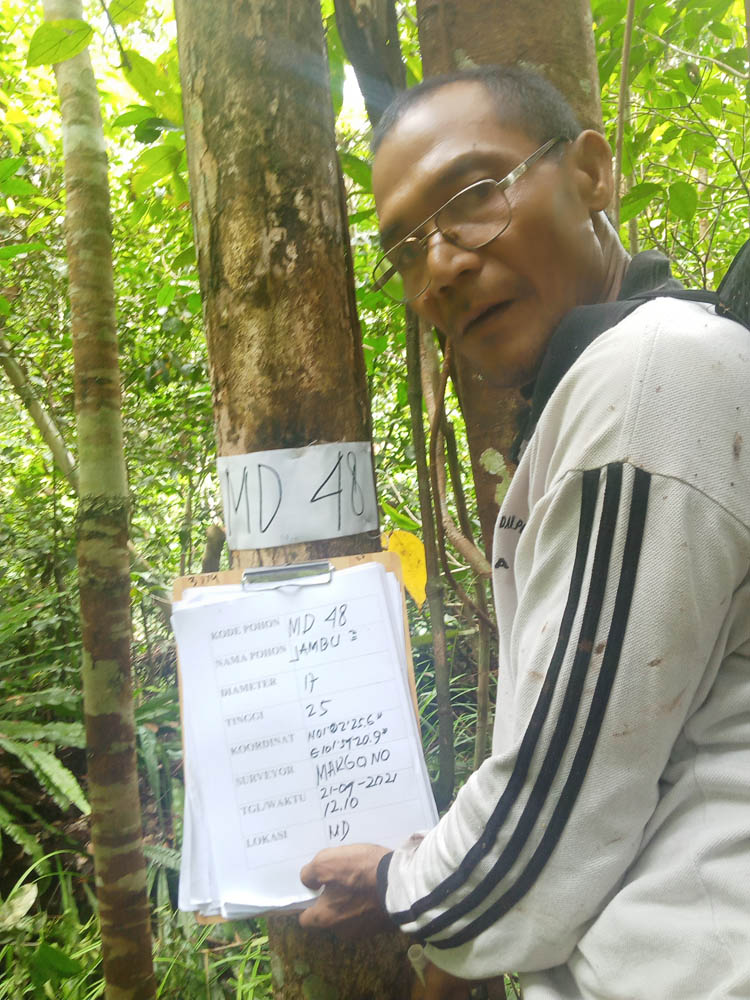 MD 48
KODE POHON MD 48
NAMA POHON JAMBU 2
DIAMETER 17
TINGGI 25
KOORDINAT N01°02'25.6"
E101°39'20.9"
SURVEYOR MARGONO
TGL/WAKTU 21-09-2021
12.10
LOKASI MD